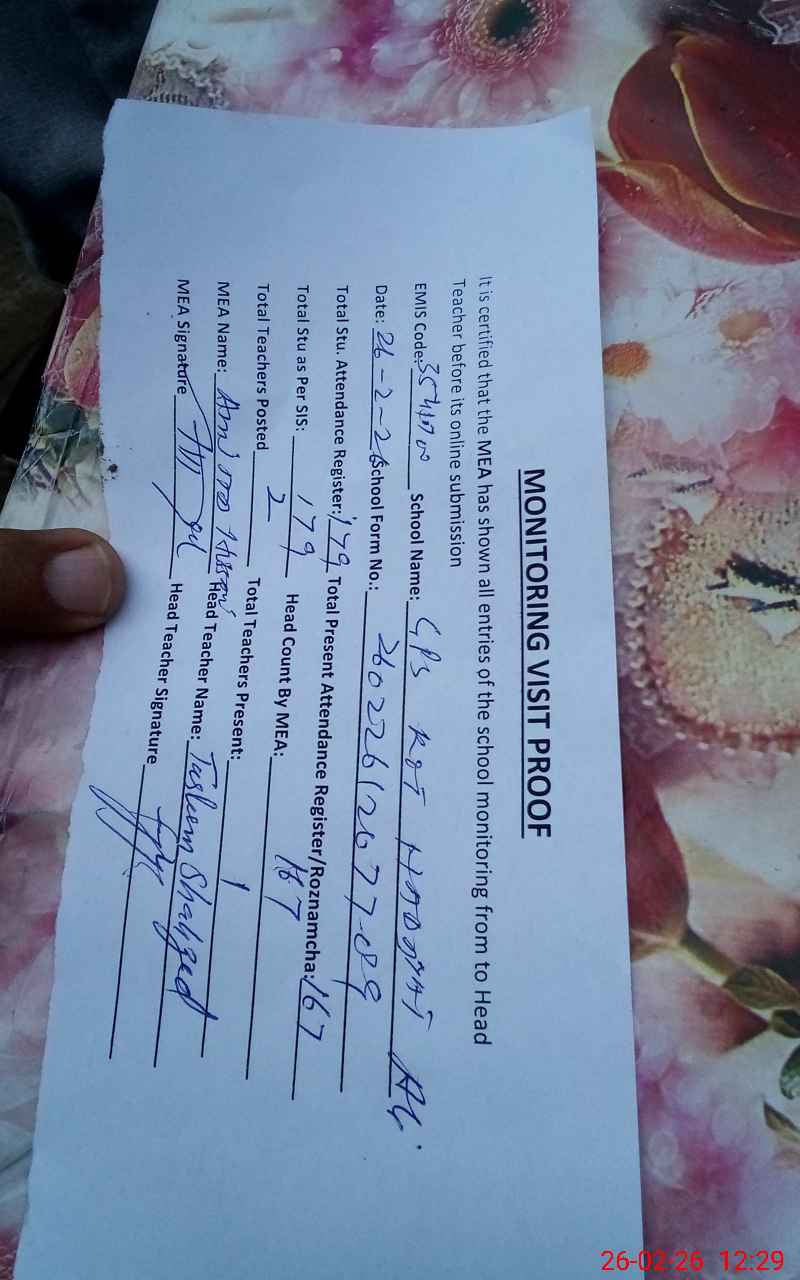 MONITORING VISIT PROOF
It is certified that the MEA has shown all entries of the school monitoring from to Head
Teacher before its online submission
EMIS Code: School Name: GPS KOT Ali
Date: 26-2-26 School Form No.:
Total Stu. Attendance Register: 179 Total Present Attendance Register/Roznamcha: 167
Total Stu as Per SIS: 179 Head Count By MEA: 167
Total Teachers Posted 2 Total Teachers Present: 1
MEA Name: Head Teacher Name: Shahzad
MEA Signature Head Teacher Signature
26-02-26 12:29